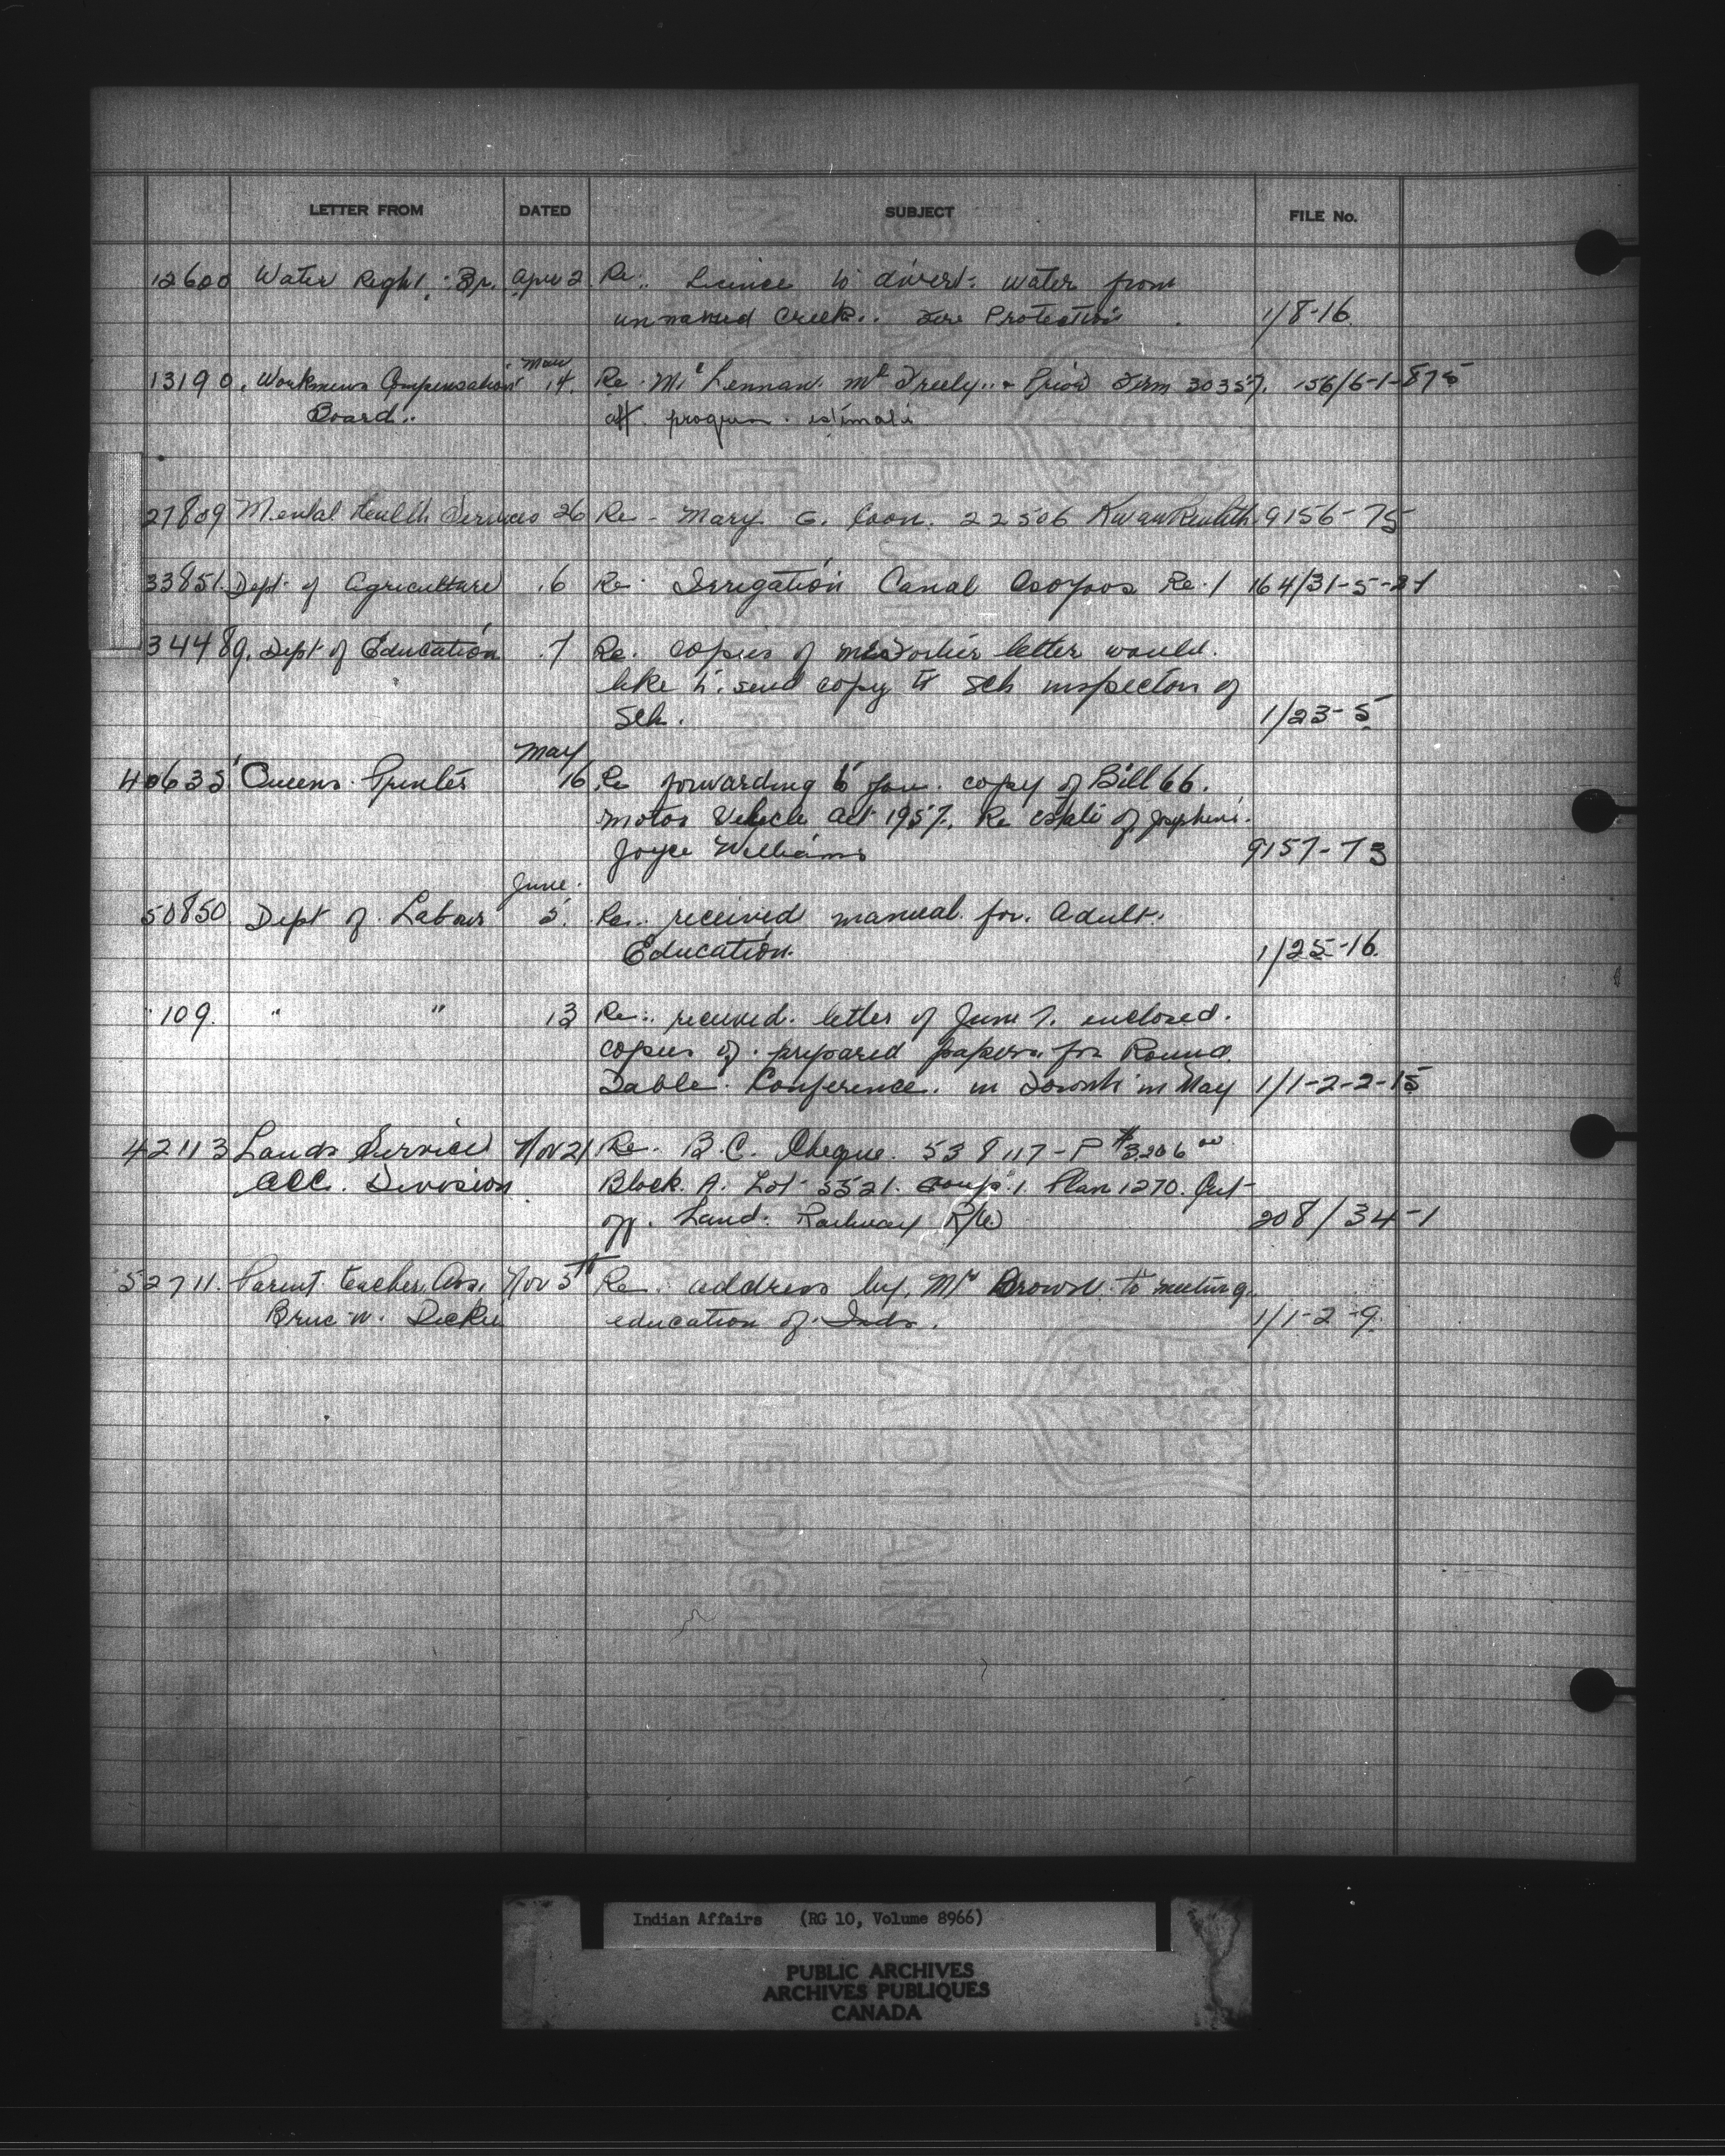 LETTER FROM DATED SUBJECT FILE No.
12600 Water Right. Br. Apr 2 Re: Licince to divert water from
unnamed Creek. Fire Protection 1/8-16.
13190. Workmens Compensation 14. Re. Mc Lennan. Mc Freely & Prior Firm 30357. 156/6-1-875
Board.
27809 Mental Health Services 26 Re - Mary G. Coon. 22506 9156-75
33851. Dept. of Agriculture .6 Re. Irrigation Canal Osoyoos Re. 1 164/31-5-
34489. Dept of Education .7 Re. copies of letter would.
like to send copy to Sch inspector of
Sch. 1/23-5
May
40635 Queens Printer 16 Re forwarding to you copy of Bill 66.
Motor Vehicle Act 1957. Re Estate of
Joyce Williams 9157-73
June.
50850 Dept of Labour 5. Re. received manual for Adult.
Education. 1/25-16.
109. " " 13 Re. received letter of June 7. enclosed.
copies of prepared papers for Round
Table Conference. in in May 1/1-2-2-15
42113 Lands Service Nov 21 Re. B.C. Cheque. 538117-P $3206 00
Acc. Division Block A. Lot 3521. Group 1. Plan 1270. Cut
off. Land. Railway R/W 208/34-1
52711. Parent teacher Ass. Nov 5th Re. address by Mr Brown to meeting.
Bruc W. Dickie education of Inds. 1/1-2-9.
Indian Affairs (RG 10, Volume 8966)
PUBLIC ARCHIVES
ARCHIVES PUBLIQUES
CANADA